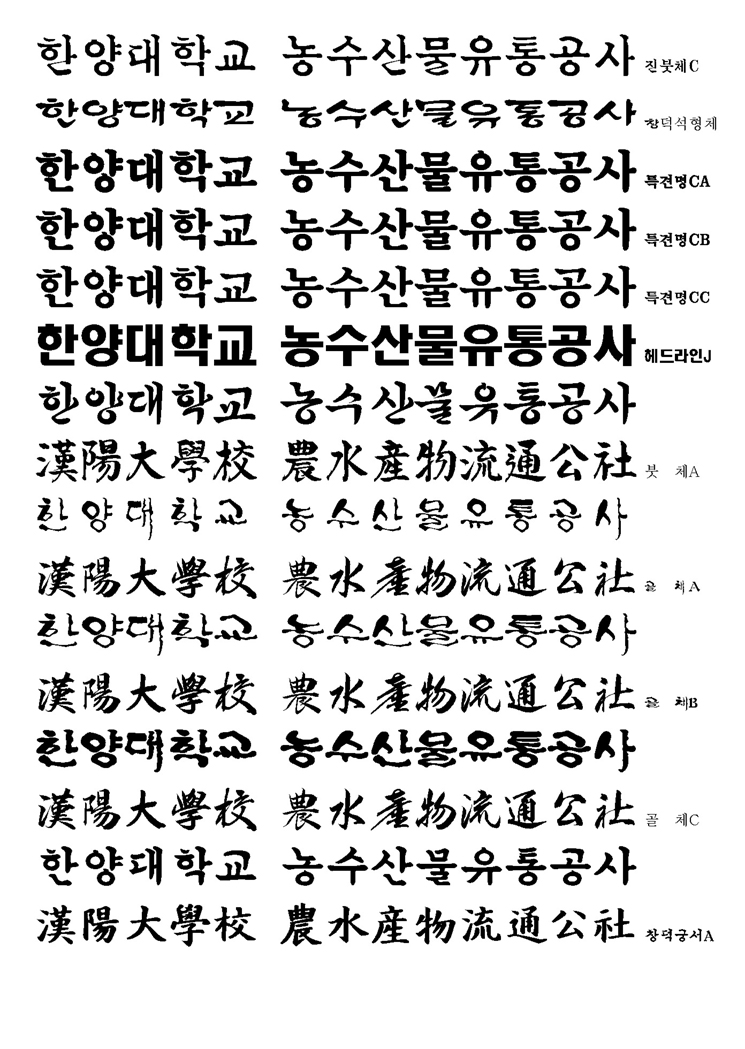 한양대학교 농수산물유통공사 진붓체C
한양대학교 농수산물유통공사 창덕석형체
한양대학교 농수산물유통공사 특견명CA
한양대학교 농수산물유통공사 특견명CB
한양대학교 농수산물유통공사 특견명CC
한양대학교 농수산물유통공사 헤드라인J
한양대학교 농수산물유통공사
漢陽大學校 農水産物流通公社 붓 체A
한양대학교 농수산물유통공사
漢陽大學校 農水産物流通公社 골 체A
한양대학교 농수산물유통공사
漢陽大學校 農水産物流通公社 골 체B
한양대학교 농수산물유통공사
漢陽大學校 農水産物流通公社 골 체C
한양대학교 농수산물유통공사
漢陽大學校 農水産物流通公社 창덕궁서A